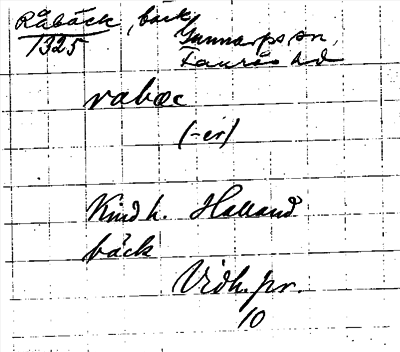 Råbäck, back
1325 Gunnarps sn,
Faurås hd
rabæc
(-er)
Kind h. Halland
bäck
Vidh. pr.
10